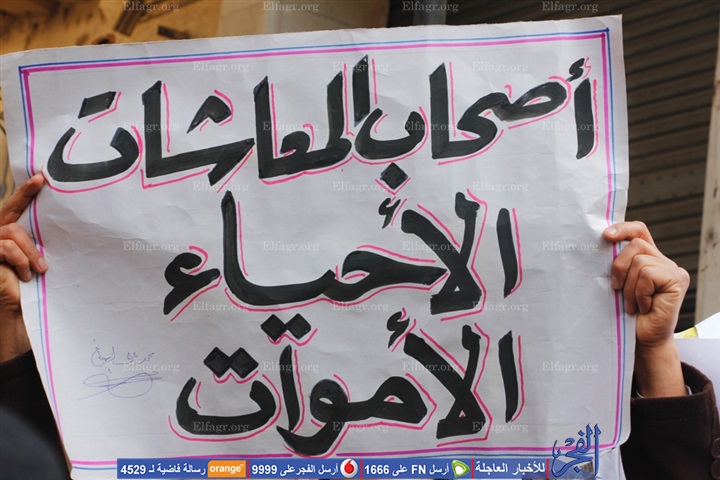 أصحاب المعاشات
الأحياء
الأموات
الفجر
للأخبار العاجلة أرسل FN على 1666 أرسل الفجر على 9999 orange رسالة فاضية لـ 4529
Elfagr.org